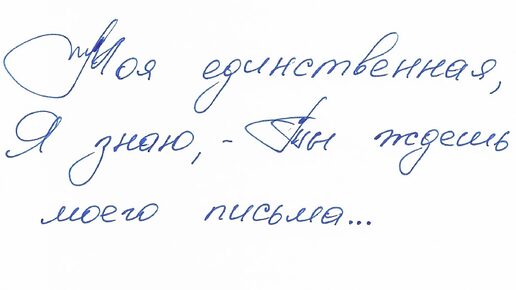 Моя единственная,
Я знаю, - Ты ждешь
моего письма...